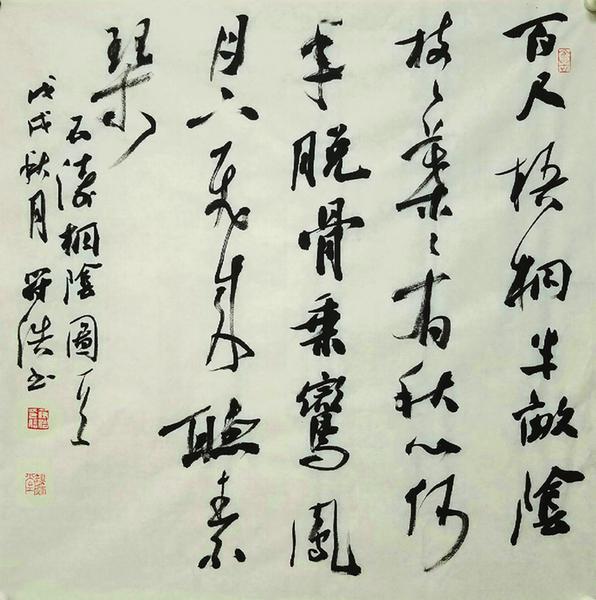 百尺梧桐半畝陰
枝々葉々有秋心何
年脱骨乘鸞鳳
月下飛來聽素
琴
石濤桐陰圖
戊戌秋月 浩书